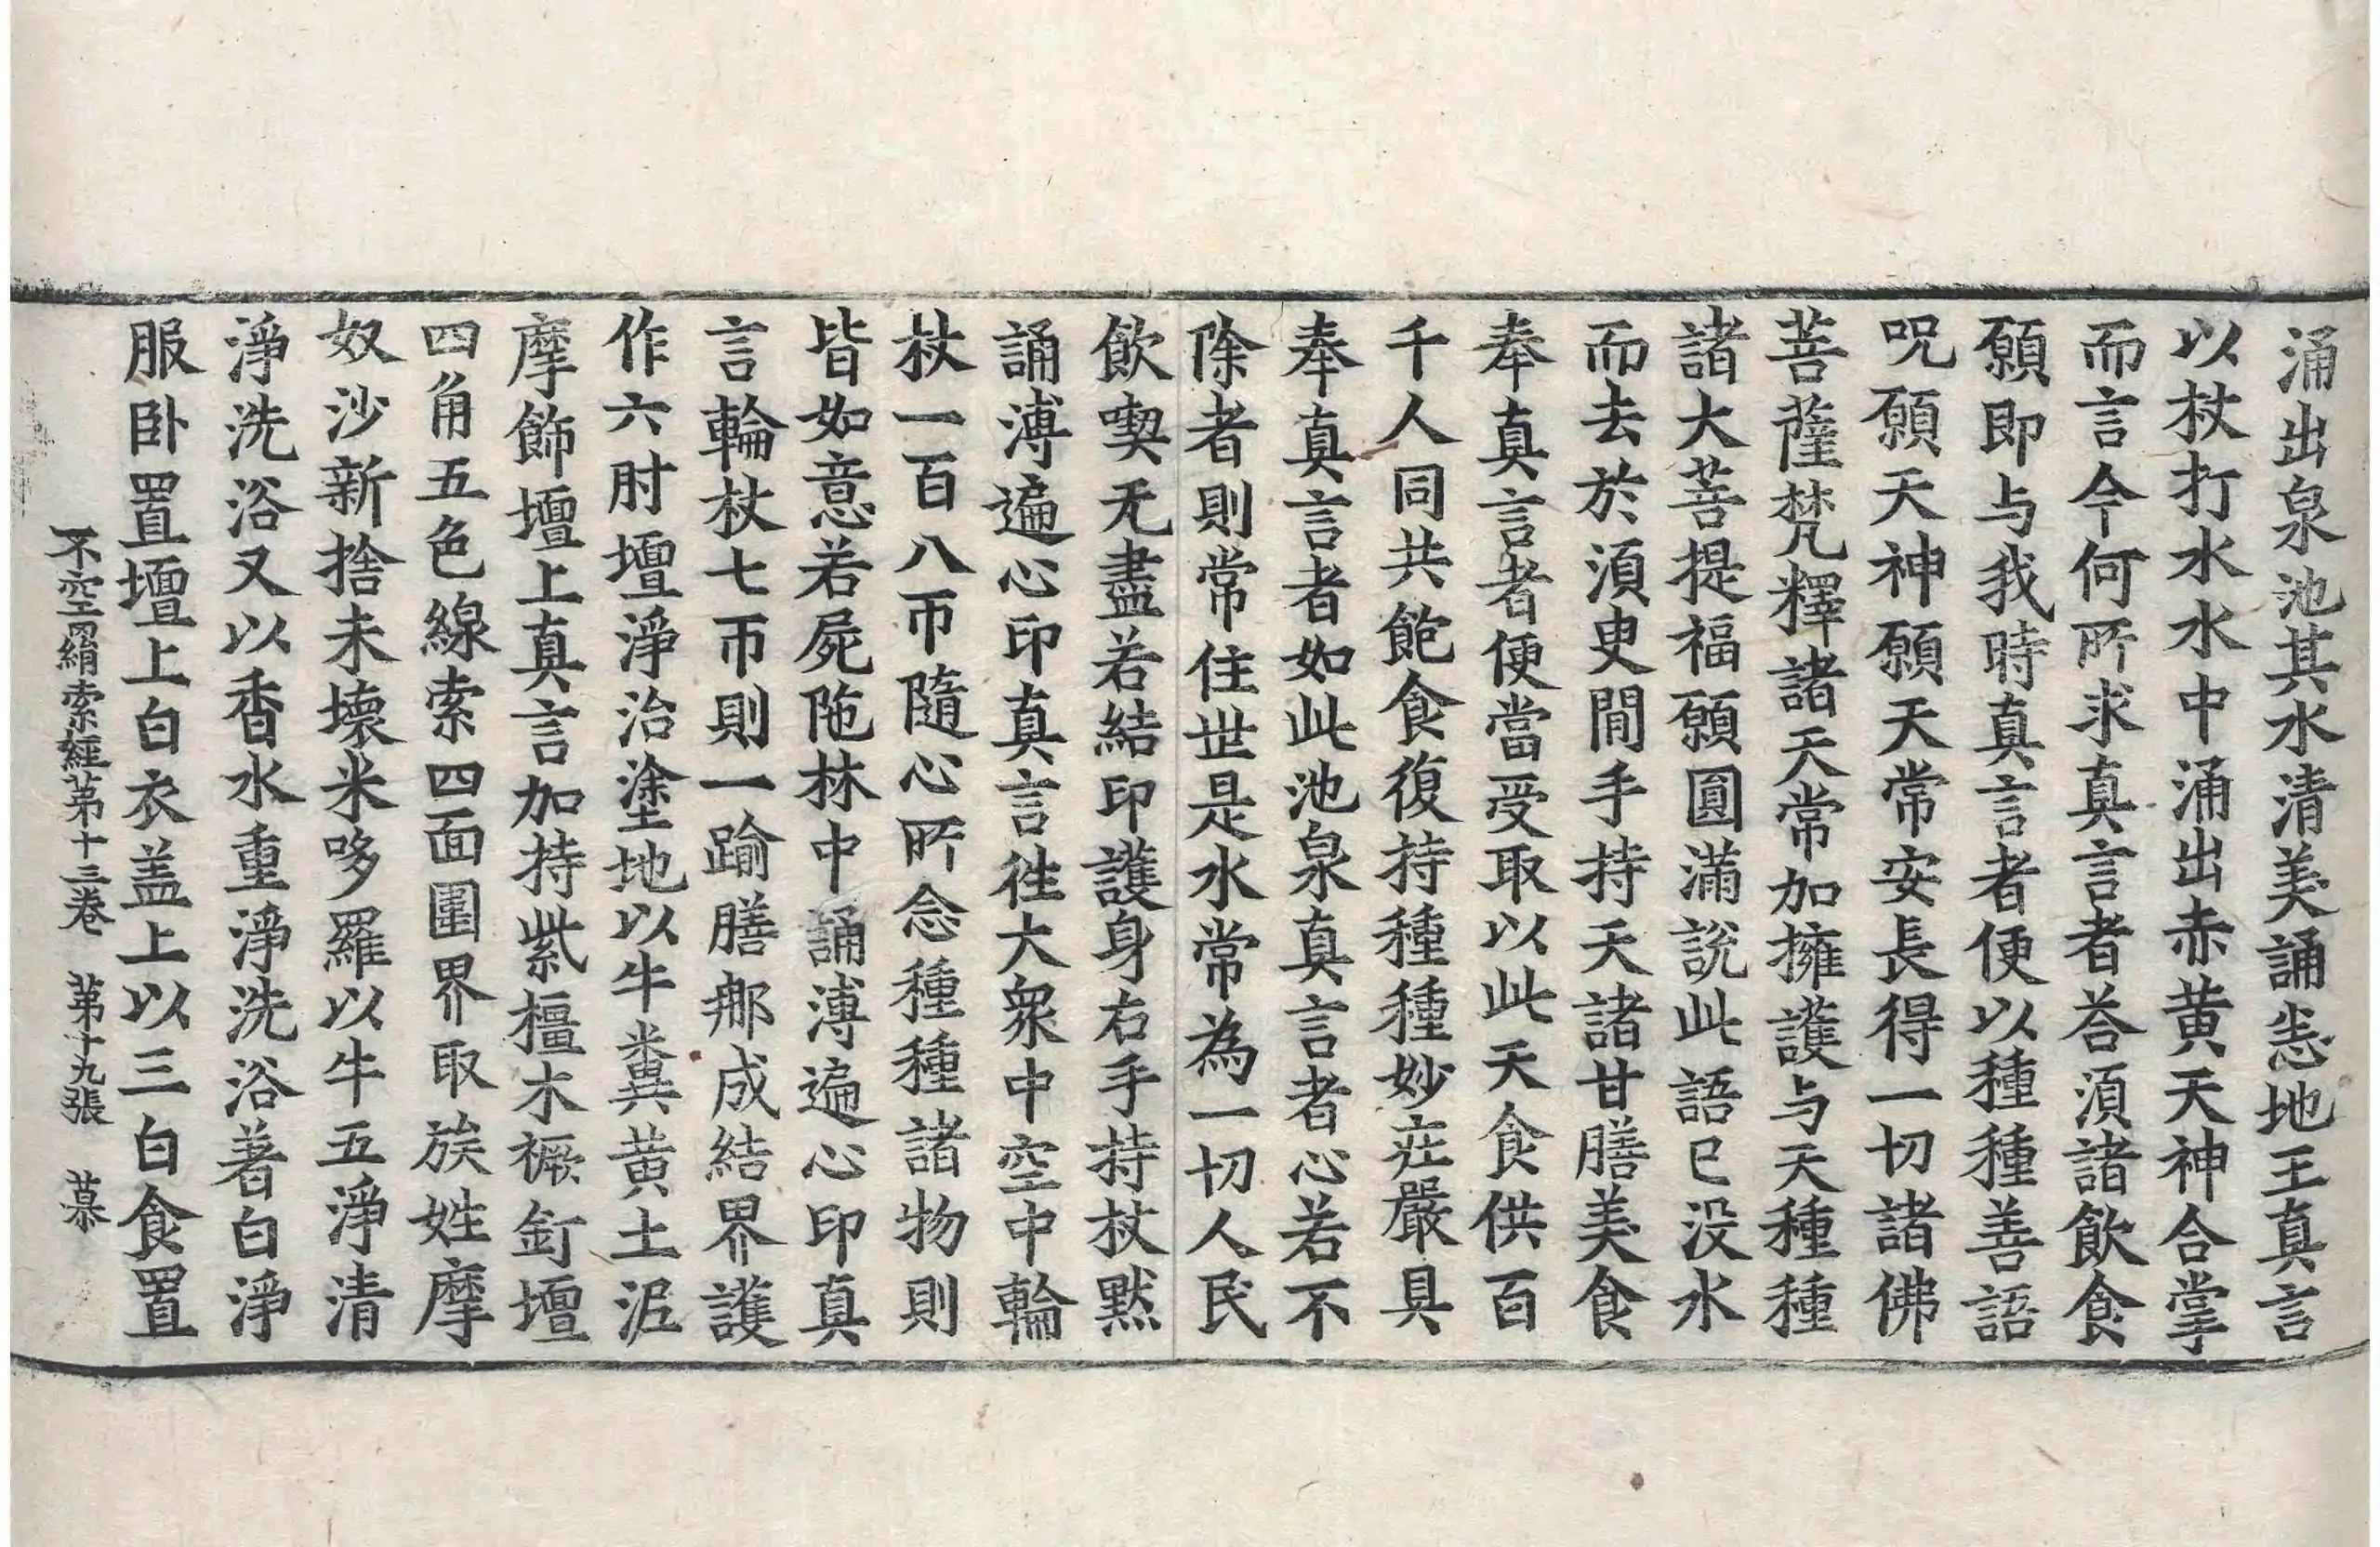 涌出泉池其水清美誦恚地王真言
以杖打水水中涌出赤黄天神合掌
而言今何所求真言者荅須諸飲食
願即与我時真言者便以種種善語
呪願天神願天常安長得一切諸佛
菩薩梵釋諸天常加擁護与天種種
諸大菩提福願圓滿說此語已没水
而去於須臾間手持天諸甘膳美食
奉真言者便當受取以此天食供百
千人同共飽食復持種種妙莊嚴具
奉真言者如此池泉真言者心若不
除者則常住世是水常為一切人民
飲喫无盡若結印護身右手持杖默
誦溥遍心印真言徃大衆中空中輪
杖一百八帀隨心所念種種諸物則
皆如意若屍陁林中誦溥遍心印真
言輪杖七帀則一踰膳那成結界護
作六肘壇淨治塗地以牛糞黄土泥
摩飾壇上真言加持紫橿木橛釘壇
四角五色線索四面圍界取族姓摩
奴沙新捨未壞米哆羅以牛五淨清
淨洗浴又以香水重淨洗浴著白淨
服卧置壇上白衣盖上以三白食置
不空羂索經苐十三卷　苐十九張　慕